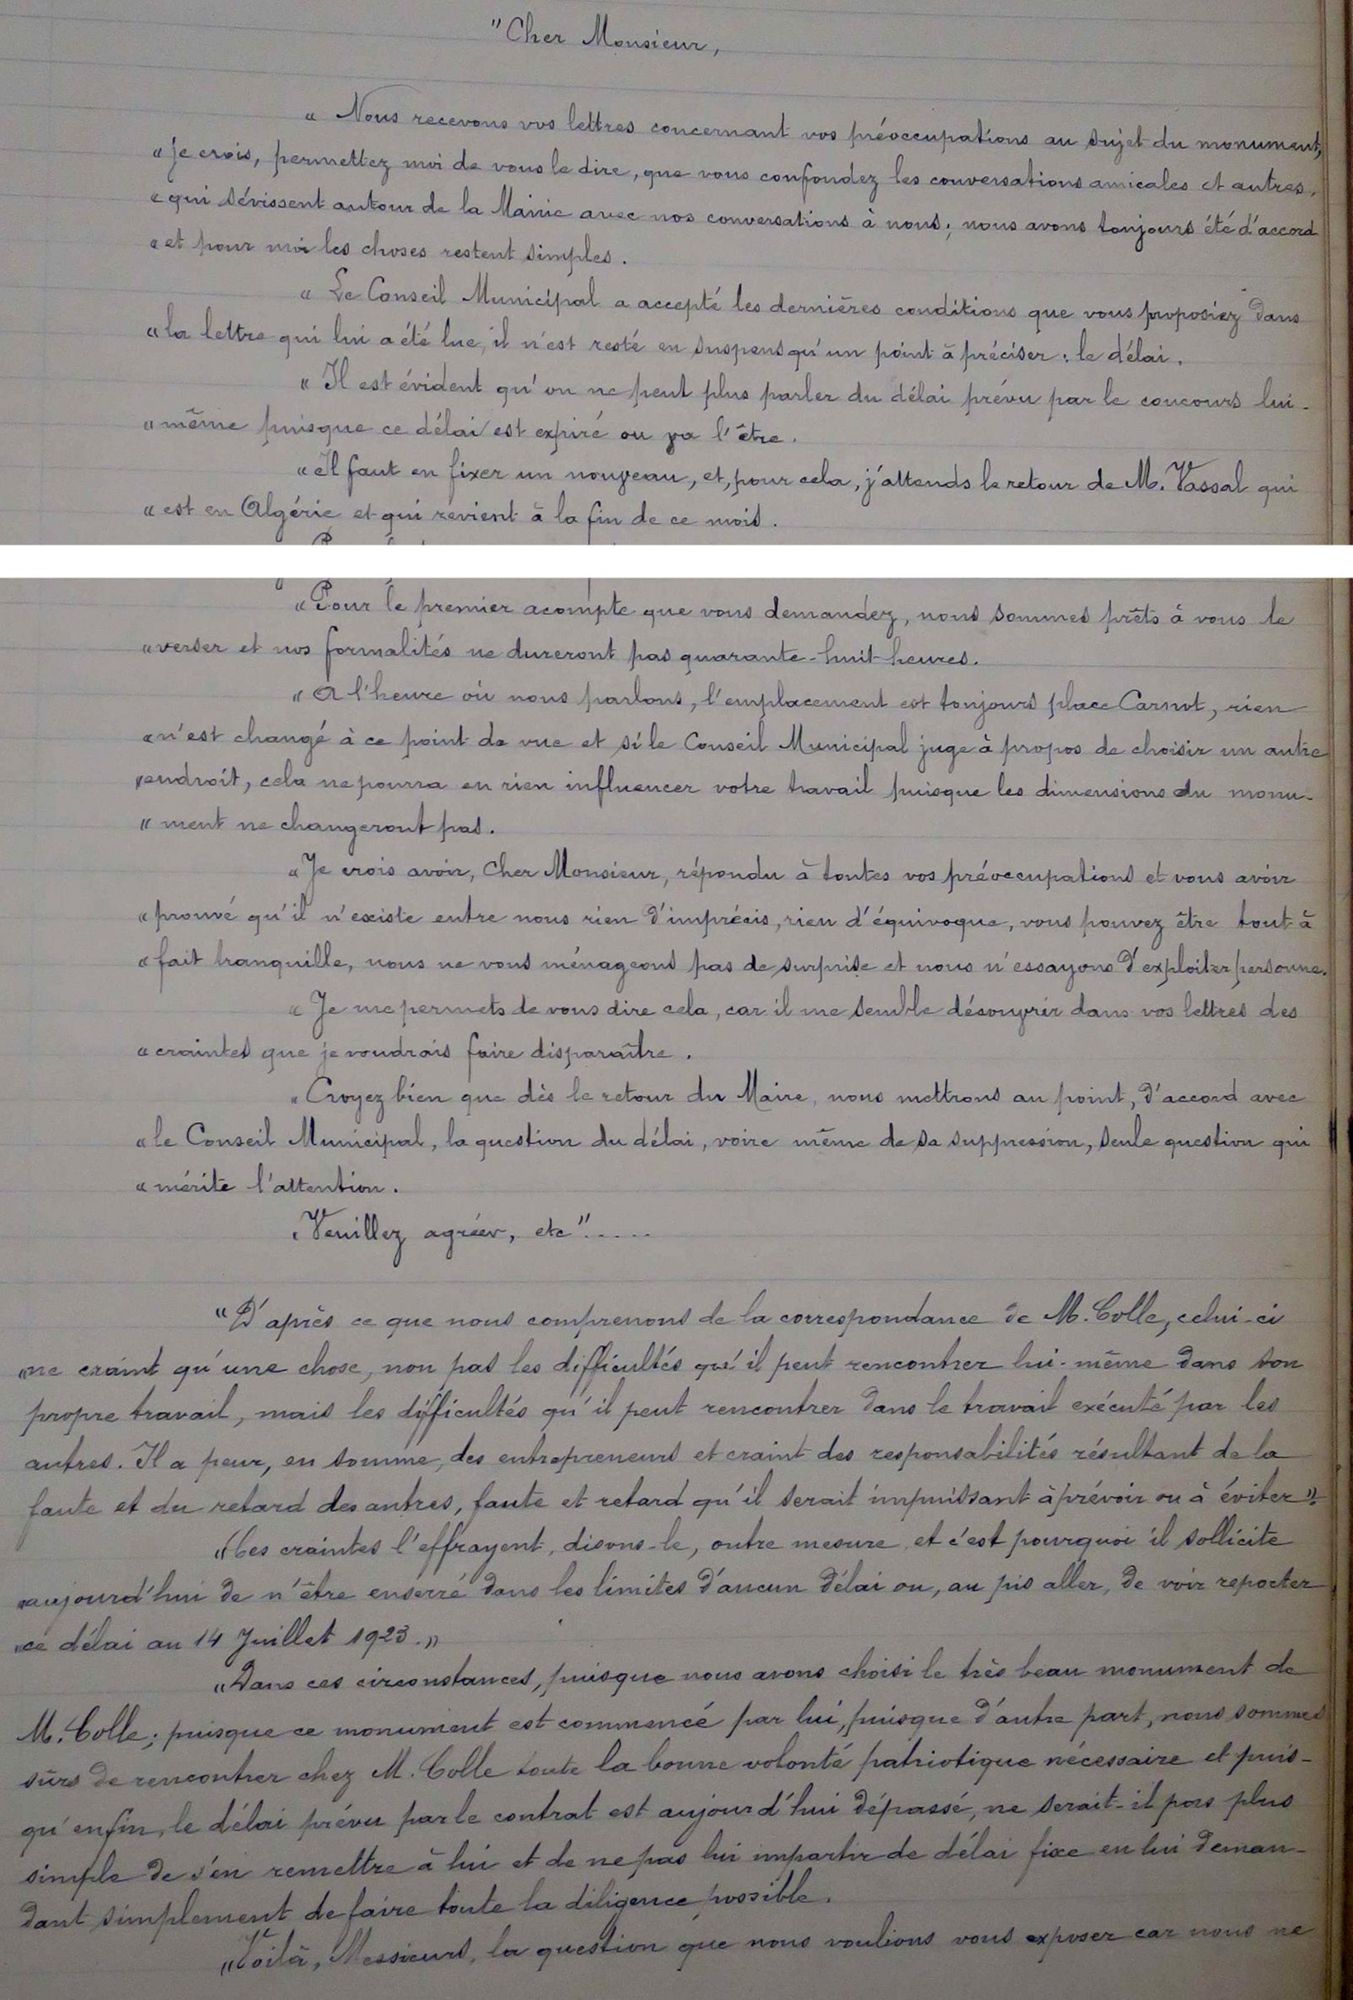 "Cher Monsieur,
« Nous recevons vos lettres concernant vos préoccupations au sujet du monument,
« je crois, permettez moi de vous le dire, que vous confondez les conversations amicales et autres,
« qui sévissent autour de la Mairie avec nos conversations à nous ; nous avons toujours été d'accord
« et pour moi les choses restent simples.
« Le Conseil Municipal a accepté les dernières conditions que vous proposiez dans
« la lettre qui lui a été lue, il n'est resté en suspens qu'un point à préciser : le délai.
« Il est évident qu'on ne peut plus parler du délai prévu par le concours lui-
« même puisque ce délai est expiré ou va l'être.
« Il faut en fixer un nouveau, et, pour cela, j'attends le retour de M. Vassal qui
« est en Algérie et qui revient à la fin de ce mois.
« Pour le premier acompte que vous demandez, nous sommes prêts à vous le
« verser et nos formalités ne dureront pas quarante-huit heures.
« A l'heure où nous parlons, l'emplacement est toujours place Carnot, rien
« n'est changé à ce point de vue et si le Conseil Municipal juge à propos de choisir un autre
« endroit, cela ne pourra en rien influencer votre travail puisque les dimensions du monu-
« ment ne changeront pas.
« Je crois avoir, Cher Monsieur, répondu à toutes vos préoccupations et vous avoir
« prouvé qu'il n'existe entre nous rien d'imprécis, rien d'équivoque, vous pouvez être tout à
« fait tranquille, nous ne vous ménageons pas de surprise et nous n'essayons d'exploiter personne.
« Je me permets de vous dire cela, car il me semble découvrir dans vos lettres des
« craintes que je voudrais faire disparaître.
« Croyez bien que dès le retour du Maire, nous mettrons au point, d'accord avec
« le Conseil Municipal, la question du délai, voire même de sa suppression, seule question qui
« mérite l'attention.
« Veuillez agréer, etc".....
"D'après ce que nous comprenons de la correspondance de M. Colle, celui-ci
« ne craint qu'une chose, non pas les difficultés qu'il peut rencontrer lui-même dans son
propre travail, mais les difficultés qu'il peut rencontrer dans le travail exécuté par les
autres. Il a peur, en somme, des entrepreneurs et craint des responsabilités résultant de la
faute et du retard des autres, faute et retard qu'il serait impuissant à prévoir ou à éviter".
« Ces craintes l'effrayent, disons-le, outre mesure et c'est pourquoi il sollicite
« aujourd'hui de n'être enserré dans les limites d'aucun délai ou, au pis aller, de voir reporter
« ce délai au 14 Juillet 1923. »
« Dans ces circonstances, puisque nous avons choisi le très beau monument de
M. Colle ; puisque ce monument est commencé par lui, puisque d'autre part, nous sommes
sûrs de rencontrer chez M. Colle toute la bonne volonté patriotique nécessaire et puis-
qu'enfin, le délai prévu par le contrat est aujourd'hui dépassé, ne serait-il pas plus
simple de s'en remettre à lui et de ne pas lui impartir de délai fixe en lui deman-
dant simplement de faire toute la diligence possible.
« Voilà, Messieurs, la question que nous voulions vous exposer car nous ne